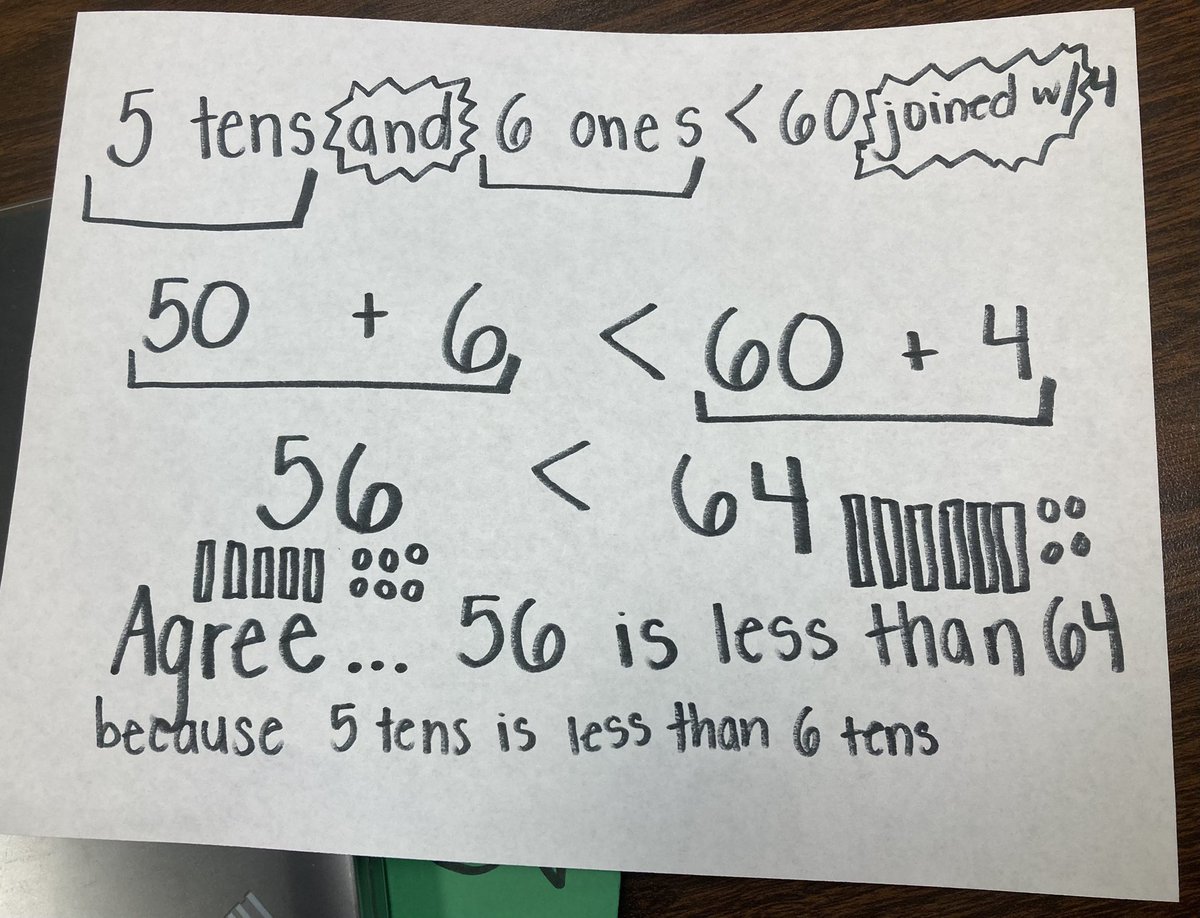 5 tens and 6 ones < 60 joined w/ 4
50 + 6 < 60 + 4
56 < 64
Agree... 56 is less than 64
because 5 tens is less than 6 tens